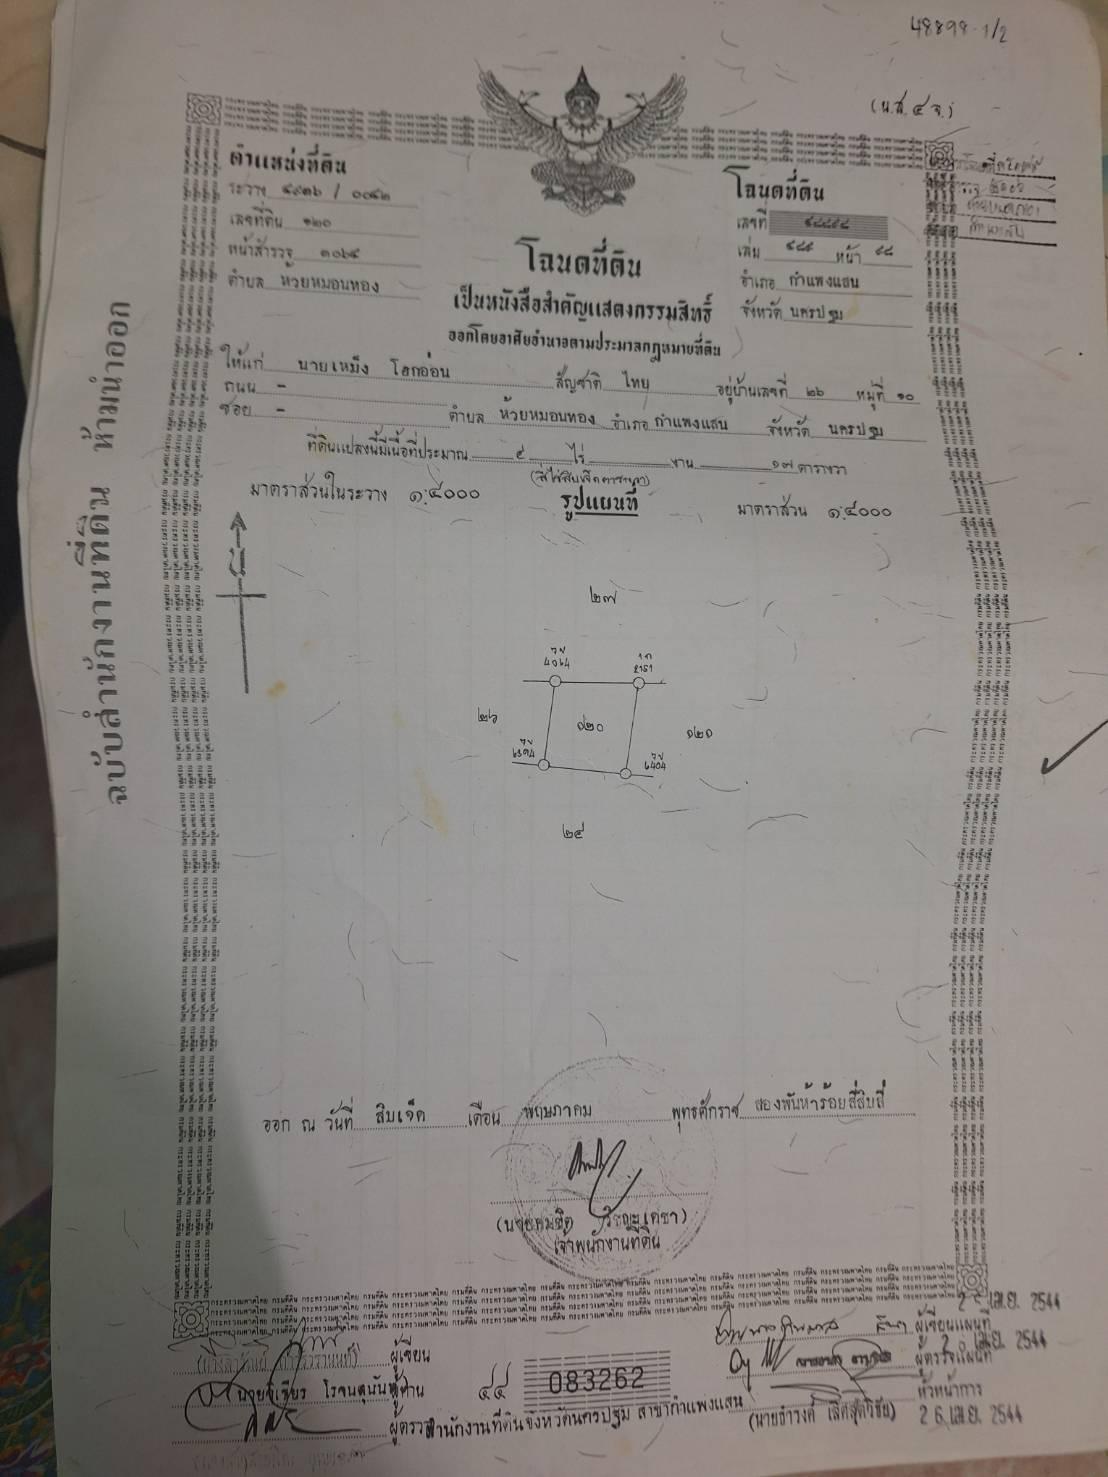 48898-1/2
(น.ส.๔ จ.)
ฉบับสำนักงานที่ดิน ห้ามนำออก
ตำแหน่งที่ดิน
ระวาง ๔๙๓๖ /
เลขที่ดิน ๑๒๐
หน้าสำรวจ
ตำบล ห้วยหมอนทอง
โฉนดที่ดิน
เลขที่ ๔๘๘๙๘
เล่ม ๔๘๙ หน้า ๙๘
อำเภอ กำแพงแสน
จังหวัด นครปฐม
โฉนดที่ดิน
เป็นหนังสือสำคัญแสดงกรรมสิทธิ์
ออกโดยอาศัยอำนาจตามประมวลกฎหมายที่ดิน
ให้แก่ นายเหม็ง โฮกอ่อน สัญชาติ ไทย อยู่บ้านเลขที่ ๒๖ หมู่ที่ ๑๐
ถนน -
ซอย - ตำบล ห้วยหมอนทอง อำเภอ กำแพงแสน จังหวัด นครปฐม
ที่ดินแปลงนี้มีเนื้อที่ประมาณ ๔ ไร่ งาน ๑๗ ตารางวา
(สี่ไร่สิบเจ็ดตารางวา)
มาตราส่วนในระวาง ๑:๔๐๐๐ รูปแผนที่ มาตราส่วน ๑:๔๐๐๐
๒๗
๒๖ ๑๒๐ ๑๒๑
๒๔
ออก ณ วันที่ สิบเจ็ด เดือน พฤษภาคม พุทธศักราช สองพันห้าร้อยสี่สิบสี่
เจ้าพนักงานที่ดิน
เม.ย. 2544
ผู้เขียน ผู้เขียนแผนที่
เม.ย. 2544
นายวิเชียร โรจนสุนันท์ ผู้ทาน ๔๔ 083262 ผู้ตรวจแผนที่
หัวหน้าการ
ผู้ตรวจ สำนักงานที่ดินจังหวัดนครปฐม สาขากำแพงแสน (นายธำรงค์ เลิศสุดวิชัย) 2 6 เม.ย. 2544